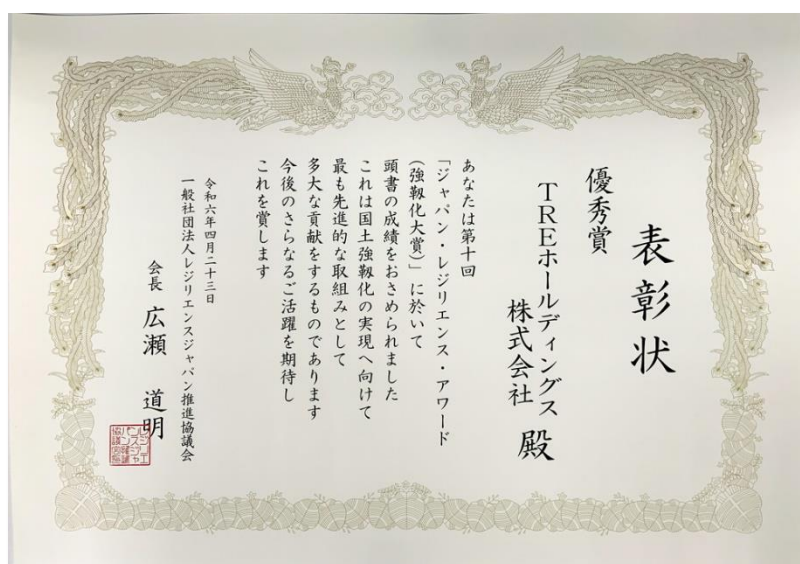 表彰状
優秀賞
TREホールディングス
株式会社 殿
あなたは第十回
「ジャパン・レジリエンス・アワード
(強靱化大賞)」に於いて
頭書の成績をおさめられました
これは国土強靱化の実現へ向けて
最も先進的な取組みとして
多大な貢献をするものであります
今後のさらなるご活躍を期待し
これを賞します
令和六年四月二十三日
一般社団法人レジリエンスジャパン推進協議会
会長 広瀬 道明